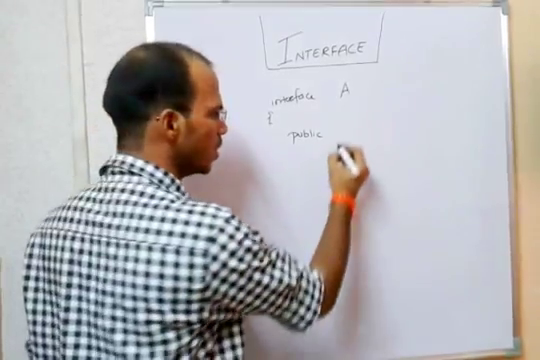 INTERFACE
interface A
{
public